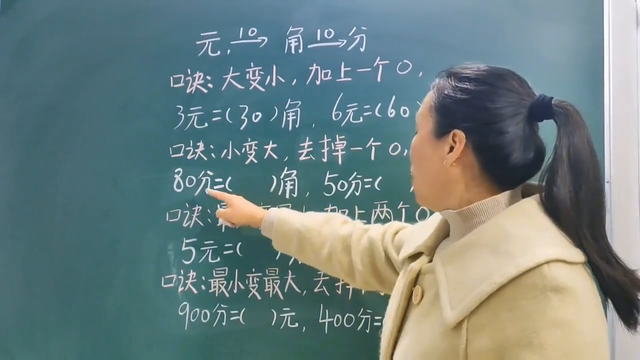 元 10→ 角 10→ 分
口诀：大变小，加上一个0，
3元=(30)角，6元=(60
口诀：小变大，去掉一个0，
80分=( )角，50分=(
口诀：最 加上两个0
5元=( )
口诀：最小变最大，去
900分=( )元，400分=